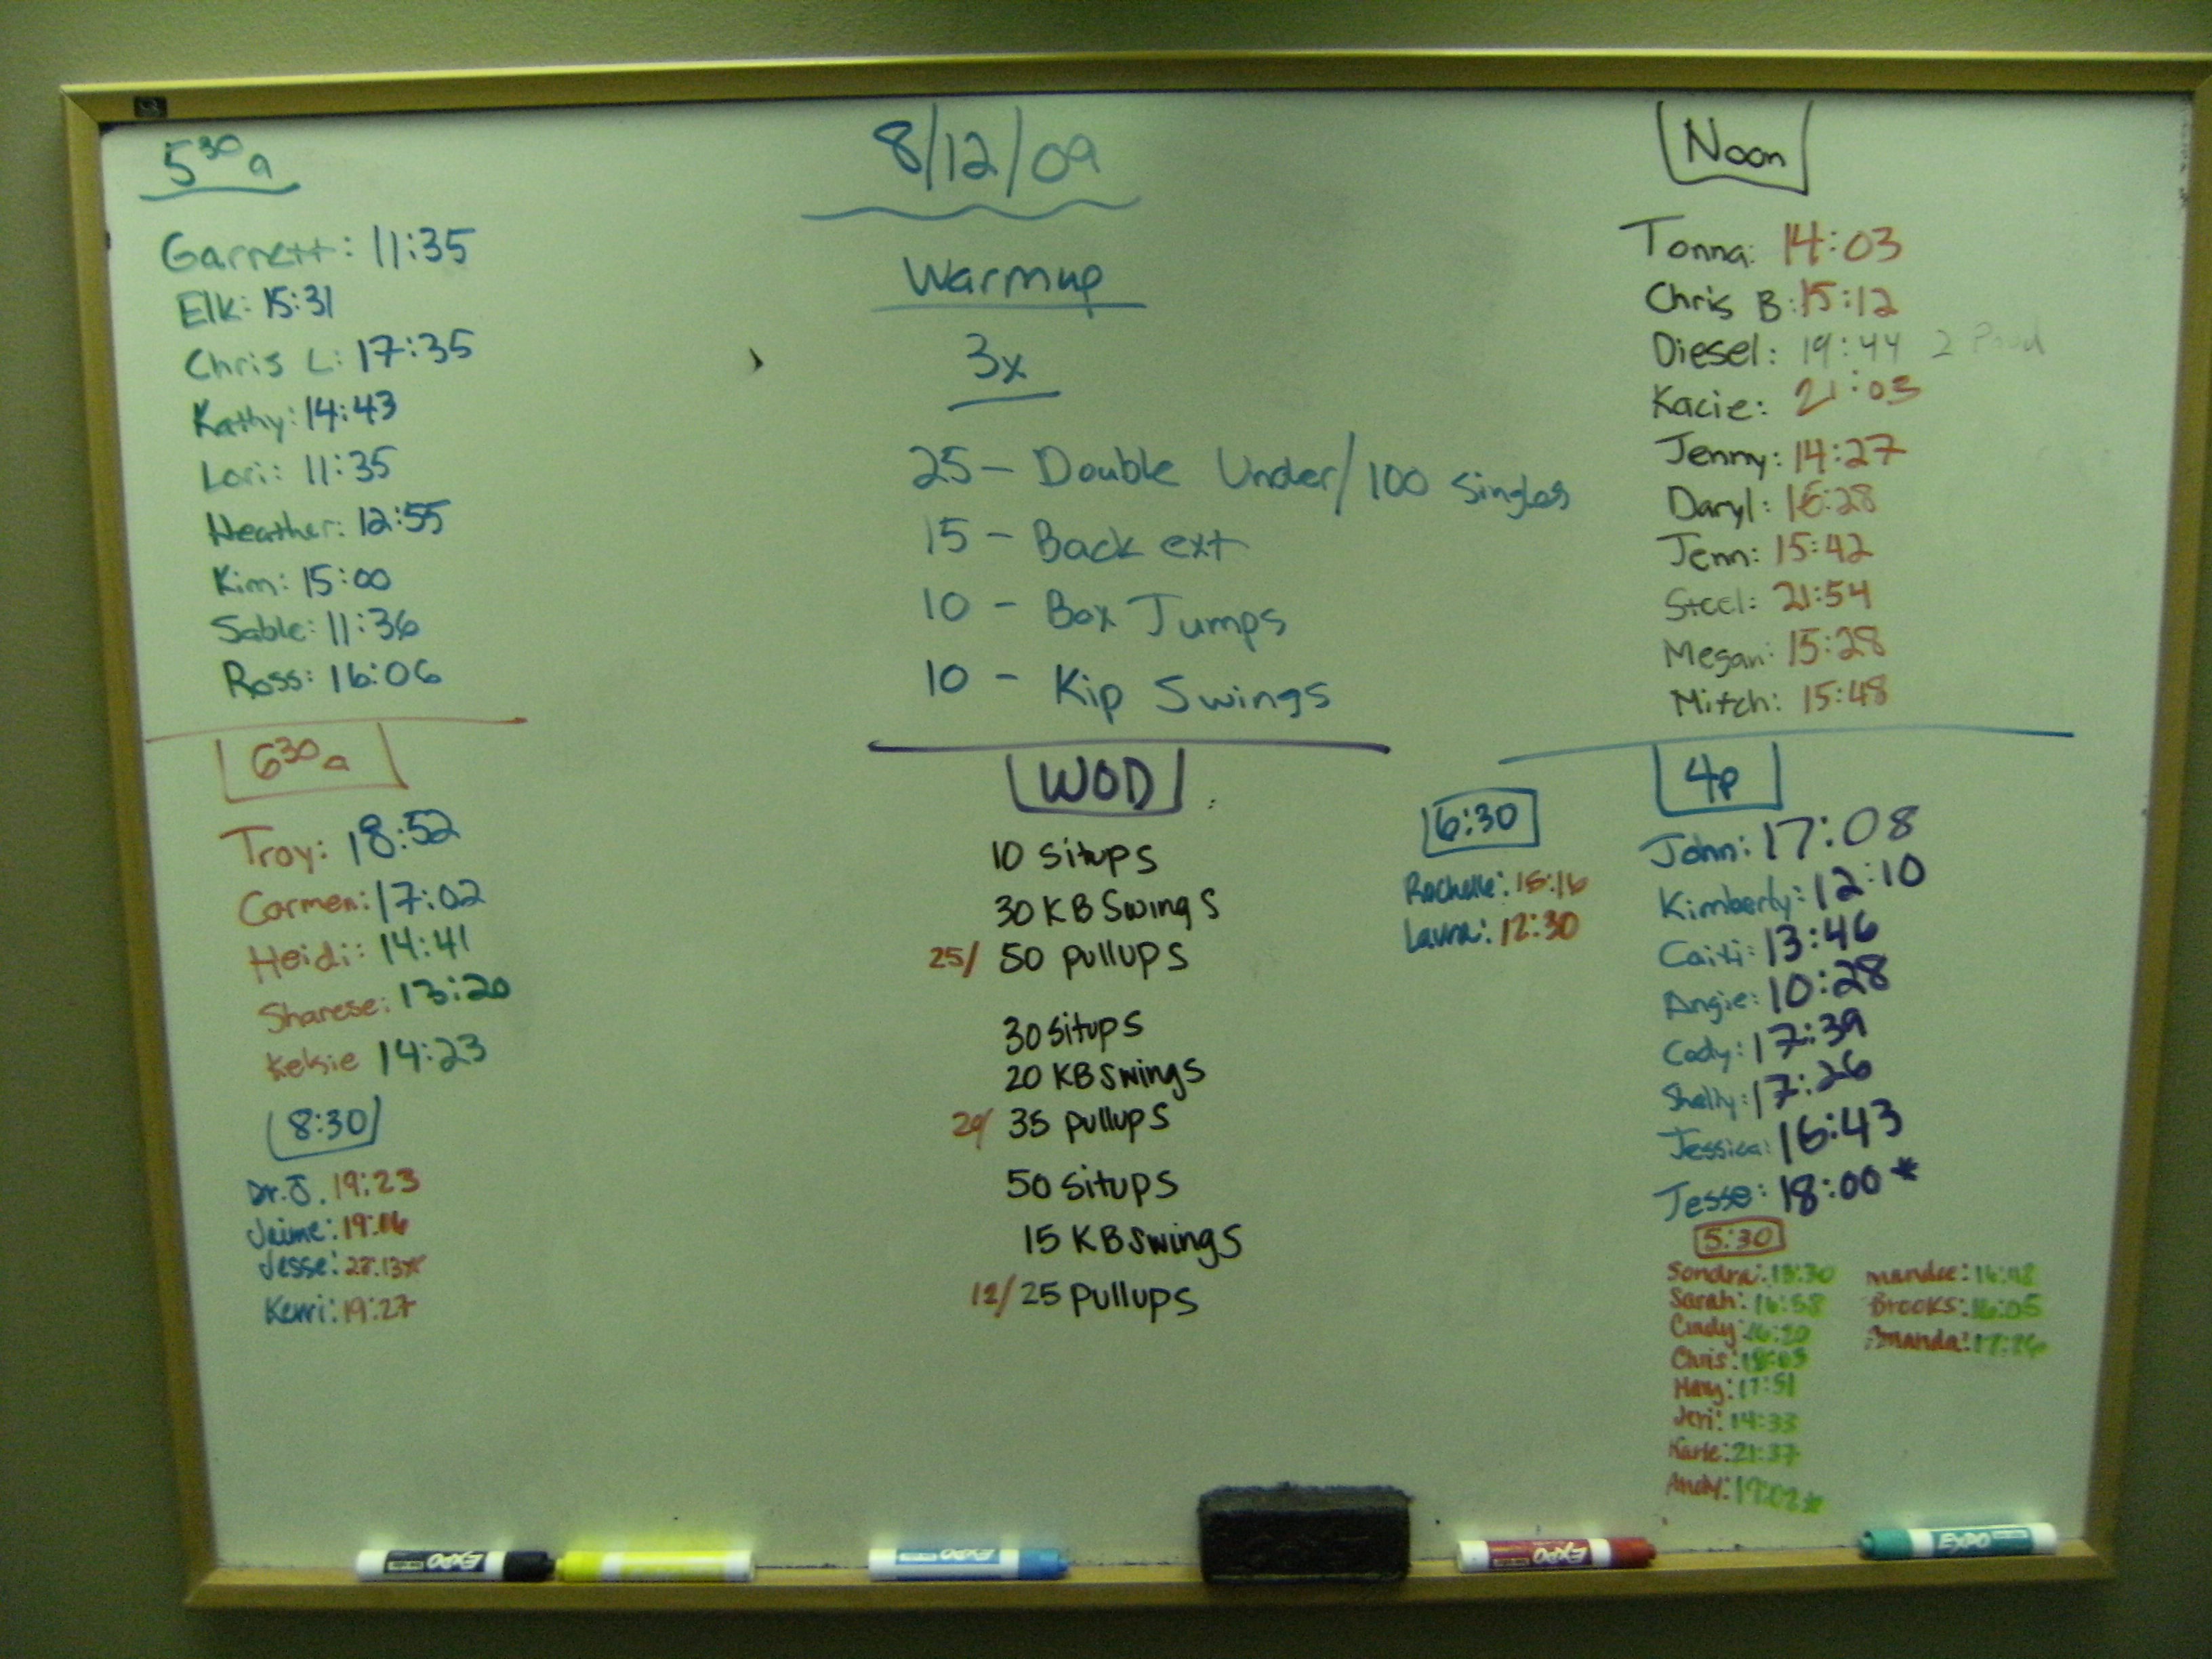 8/12/09
5 30 a
Garrett: 11:35
Elk: 15:31
Chris L: 17:35
Kathy: 14:43
Lori: 11:35
Heather: 12:55
Kim: 15:00
Sable: 11:36
Ross: 16:06
6 30 a
Troy: 18:52
Carmen: 17:02
Heidi: 14:41
Sharese: 13:20
Kelsie 14:23
8:30
Dr. J. 19:23
Jaime: 19:06
Jesse:
Kerri: 19:27
Warmup
3x
25 - Double Under/100 Singles
15 - Back ext
10 - Box Jumps
10 - Kip Swings
WOD
10 Situps
30 KB Swings
25/ 50 pullups
30 Situps
20 KB Swings
20/ 35 pullups
50 Situps
15 KB Swings
12/ 25 pullups
6:30
Rachelle: 15:16
Laura: 12:30
Noon
Tonna: 14:03
Chris B: 15:12
Diesel: 19:44 2 Pood
Kacie: 21:03
Jenny: 14:27
Daryl: 16:28
Jenn: 15:42
Steel: 21:54
Megan: 15:28
Mitch: 15:48
4p
John: 17:08
Kimberly: 12:10
Caiti: 13:46
Angie: 10:28
Cody: 17:39
Shelly: 17:26
Jessica: 16:43
Jesse: 18:00*
5:30
Sondra:
Sarah: 16:58
Cindy: 16:20
Chris: 18:03
Mary: 17:51
Jeri: 14:33
21:37
Andy: 19:02*
mandee:
Brooks: 16:05
Amanda: 17:26
EXPO
EXPO
EXPO
EXPO